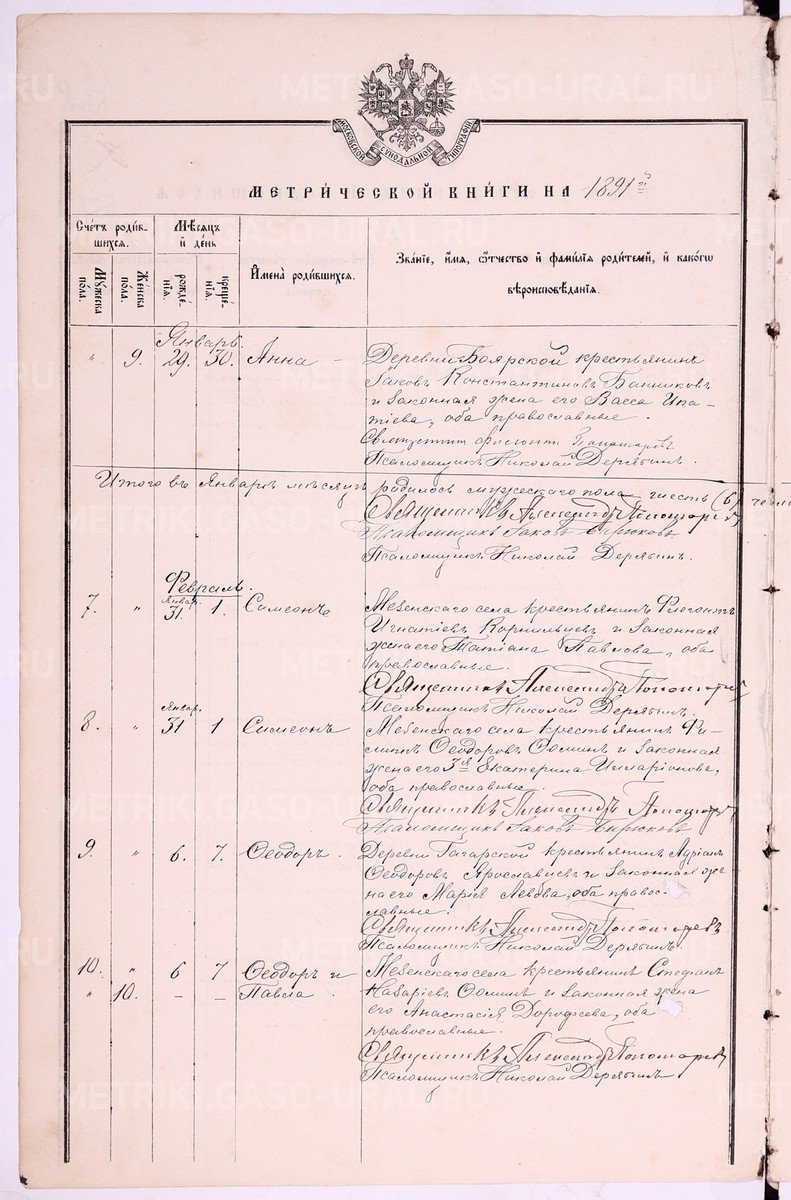 МОСКОВСКОЙ СѴНОДАЛЬНОЙ ТИПОГРАФІИ
МЕТРИ́ЧЕСКОЙ КНИ́ГИ НА 1891
Сче́тъ роди́в-
шихся.
Мꙋ́жеска
по́ла.
Же́нска
по́ла.
Мѣ́сяцъ
и҆ де́нь
рожде́-
нїѧ.
креще́-
нїѧ.
И҆мена̀ роди́вшихся.
Зва́нїе, и҆́мѧ, ѻ҆́тчество и҆ фами́лїѧ роди́телей, и҆ како́гѡ
вѣроисповѣ́данїѧ.
Январь.
" 9. 29. 30. Анна –
Деревни Боярской крестьянин
Іаковъ Константиновъ Банниковъ
и законная жена его Васса Ипа-
тіева, оба православные.
Псаломщикъ Николай Дерябинъ.
Итого въ Январѣ мѣсяцѣ родилось мужескаго пола шесть (6)
Священникъ Александръ Пономаревъ
Псаломщикъ Іаковъ Бирюковъ
Псаломщикъ Николай Дерябинъ.
Февраль.
7. " Январ. 31. 1. Симеонъ
Мезенскаго села крестьянинъ Флегонтъ
Игнатіевъ Корнильцевъ и законная
жена его Татіана Павлова, оба
православные.
Священникъ Александръ Пономаревъ
Псаломщикъ Николай Дерябинъ.
8. " Январ. 31 1 Симеонъ
Мезенскаго села крестьянинъ Фи-
липпъ Ѳеодоровъ Ѳоминъ и законная
жена его 3я Екатерина Илларіонова,
оба православные.
Священникъ Александръ Пономаревъ
Псаломщикъ Іаковъ Бирюковъ
9. " 6. 7. Ѳеодоръ.
Деревни Гагарской крестьянинъ Адріанъ
Ѳеодоровъ Ярославцевъ и законная же-
на его Марія Львова, оба право-
славные.
Священникъ Александръ Пономаревъ
Псаломщикъ Николай Дерябинъ.
10. " 6 7 Ѳеодоръ и
" 10. – – Павла.
Мезенскаго села крестьянинъ Стефанъ
Назаріевъ Ѳоминъ и законная жена
его Анастасія Дорофеева, оба
православные.
Священникъ Александръ Пономаревъ
Псаломщикъ Николай Дерябинъ
METRIKI.GASO-URAL.RU